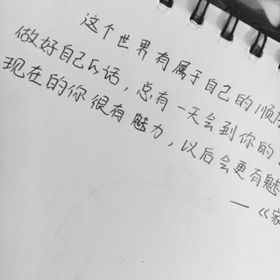 这个世界有属于自己的顺
做好自己的话，总有一天会到你的
现在的你很有魅力，以后会更有魅
——《家